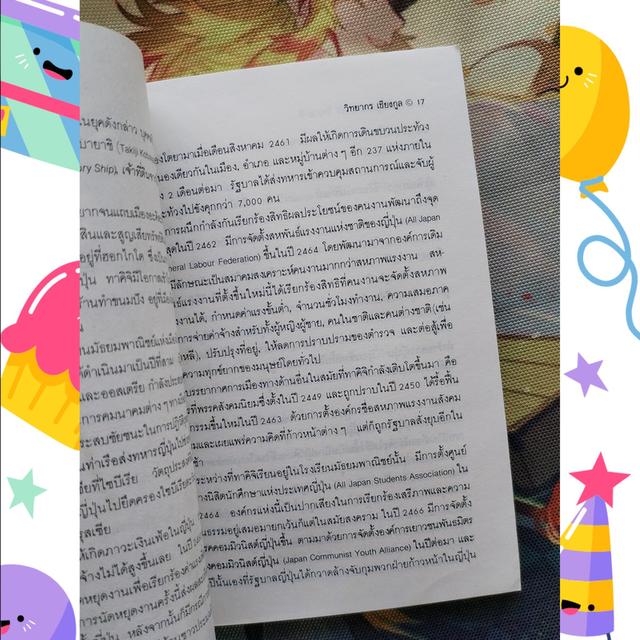 ในยุคดังกล่าว
บายาชิ (Takiji
ory Ship), เจ้าที่ดิน
ยากจนแถบเมือง
สินและสูญเสียทรัพย์
อยู่ที่ฮอกไกโด ซึ่งเป็น
ปุ่น ทาคิจิมีโอกาส
บ้านทำขนมปัง อยู่
น
นมัธยมพาณิชย์แห่งเมือง
ดำเนินมาเป็นปีที่สาม
และออสเตรีย กำลังประ
การคมนาคมต่างๆ ทาง
ระสบชัยชนะในการปฏิวัติ
ท่าเรือส่งทหารญี่ปุ่นไป
ยที่ไซบีเรีย วัตถุประสง
ปุ่นไปยึดครองไซบีเรีย
รุสเซีย
ห้เกิดภาวะเงินเฟ้อในญี่ปุ่น
จ้างไม่ได้สูงขึ้นเลย ในปี
หยุดงานเพื่อเรียกร้องค่า
การนัดหยุดงานครั้งนี้ส่งผล
ปุ่น หลังจากนั้นก็มีกรณี
วิทยากร เชียงกูล © 17
องโตยามาเมื่อเดือนสิงหาคม 2461 มีผลให้เกิดการเดินขบวนประท้วง
นองเดียวกันในเมือง, อำเภอ และหมู่บ้านต่าง ๆ อีก 237 แห่งภายใน
2 เดือนต่อมา รัฐบาลได้ส่งทหารเข้าควบคุมสถานการณ์และจับผู้
ะท้วงไปขังคุกกว่า 7,000 คน
การผนึกกำลังกันเรียกร้องสิทธิผลประโยชน์ของคนงานพัฒนาถึงจุด
สุดในปี 2462 มีการจัดตั้งสหพันธ์แรงงานแห่งชาติของญี่ปุ่น (All Japan
neral Labour Federation) ขึ้นในปี 2464 โดยพัฒนามาจากองค์การเดิม
มีลักษณะเป็นสมาคมสงเคราะห์คนงานมากกว่าสหภาพแรงงาน สห-
ธ์แรงงานที่ตั้งขึ้นใหม่นี้ได้เรียกร้องสิทธิที่คนงานจะจัดตั้งสหภาพ
งานได้, กำหนดค่าแรงขั้นต่ำ, จำนวนชั่วโมงทำงาน, ความเสมอภาค
การจ่ายค่าจ้างสำหรับทั้งผู้หญิงผู้ชาย, คนในชาติและคนต่างชาติ (เช่น
หลี), ปรับปรุงที่อยู่, ให้ลดการปราบปรามของตำรวจ และต่อสู้เพื่อ
ความทุกข์ยากของมนุษย์โดยทั่วไป
บรรยากาศการเมืองทางด้านอื่นในสมัยที่ทาคิจิกำลังเติบโตขึ้นมา คือ
ที่พรรคสังคมนิยมซึ่งตั้งในปี 2449 และถูกปราบในปี 2450 ได้รื้อฟื้น
ธรรมขึ้นใหม่ในปี 2463 ด้วยการตั้งองค์กรชื่อสหภาพแรงงานสังคม
มและเผยแพร่ความคิดที่ก้าวหน้าต่าง ๆ แต่ก็ถูกรัฐบาลสั่งยุบอีกใน
ช้า
ระหว่างที่ทาคิจิเรียนอยู่ในโรงเรียนมัธยมพาณิชย์นั้น มีการตั้งศูนย์
างนิสิตนักศึกษาแห่งประเทศญี่ปุ่น (All Japan Students Association) ใน
2464 องค์กรแห่งนี้เป็นปากเสียงในการเรียกร้องเสรีภาพและความ
ธรรมอยู่เสมอมายกเว้นก็แต่ในสมัยสงคราม ในปี 2466 มีการจัดตั้ง
คอมมิวนิสต์ญี่ปุ่นขึ้น ตามมาด้วยการจัดตั้งองค์การเยาวชนพันธมิตร
คอมมิวนิสต์ญี่ปุ่น (Japan Communist Youth Alliance) ในปีต่อมา และ
ปีนั้นเองที่รัฐบาลญี่ปุ่นได้กวาดล้างจับกุมพวกฝ่ายก้าวหน้าในญี่ปุ่น